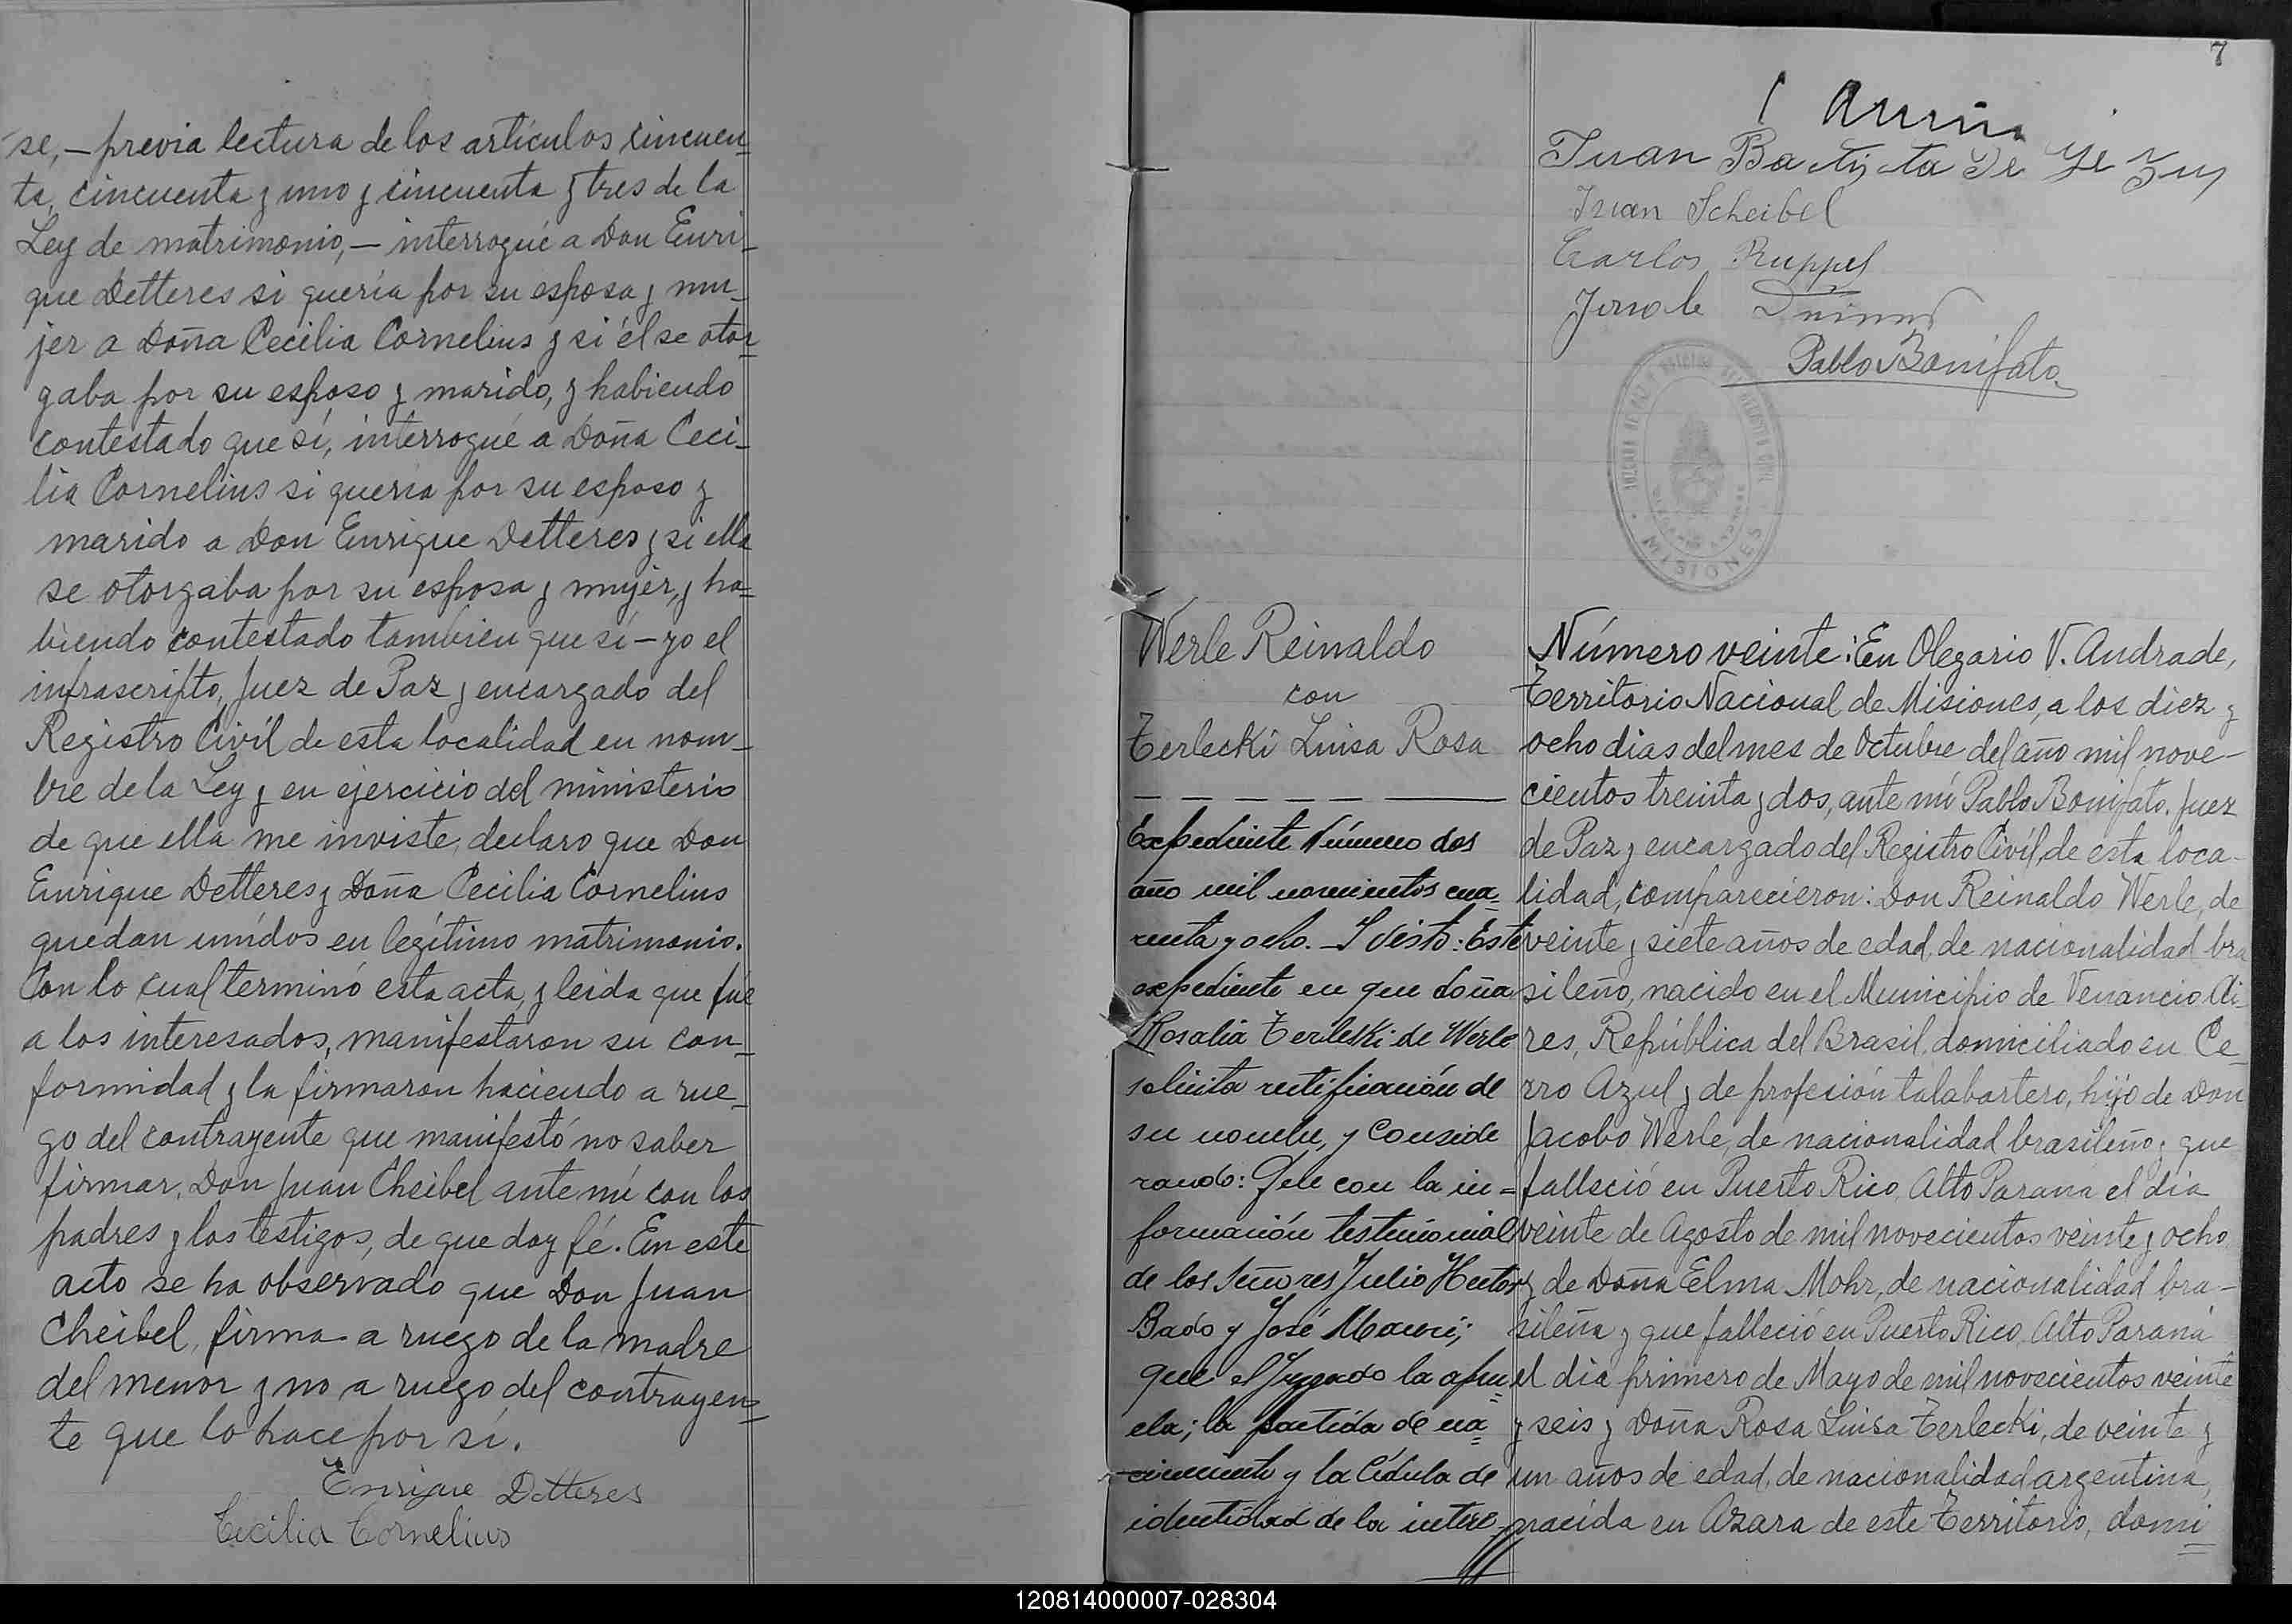 se, — previa lectura de los artículos cincuen-
ta, cincuenta y uno y cincuenta y tres de la
Ley de matrimonio, — interrogué a Don Enri-
que Detteres si quería por su esposa y mu-
jer a Doña Cecilia Cornelius y si él se otor-
gaba por su esposo y marido, y habiendo
contestado que sí, interrogué a Doña Ceci-
lia Cornelius si queria por su esposo y
marido a Don Enrique Detteres y si ella
se otorgaba por su esposa y mujer, y ha-
biendo contestado también que sí — yo el
infrascripto, Juez de Paz y encargado del
Registro Civíl de esta localidad en nom-
bre de la Ley y en ejercicio del ministerio
de que ella me inviste, declaro que Don
Enrique Detteres y Doña Cecilia Cornelius
quedan unídos en legítimo matrimonio.
Con lo cual terminó esta acta, y leida que fué
a los interesados, manifestaron su con-
formidad y la firmaron haciendo a rue-
go del contrayente que manifestó no saber
firmar, Don Juan Cheibel ante mí con los
padres y los testigos, de que doy fé. En este
acto se ha observado que Don Juan
Cheibel, firma a ruego de la madre
del menor y no a ruego del contrayen-
te que lo hace por sí.
Enrique Detteres
Cecilia Cornelius
7
Juan Batista De
Juan Scheibel
Carlos Ruppel
Pablo Bonifato
MISIONES
Werle Reinaldo
con
Terlecki Luisa Rosa
Expediente Número dos
año mil novecientos cua-
renta y ocho. — Y Visto: Este
expediente en que doña
Rosalia Terleski de Werle
solicita rectificación de
su nombre, y Conside
rando: Que con la in-
formación testimonial
de los señores Julio Hector
Bado y José
que el Juzgado la apru-
eba; la partida de na-
cimiento y la Cédula de
identidad de la intere-
Número veinte: En Olegario V. Andrade,
Territorio Nacional de Misiones, a los diez y
ocho dias del mes de Octubre del año mil nove-
cientos treinta y dos, ante mí Pablo Bonifato. Juez
de Paz y encargado del Registro Civíl, de esta loca-
lidad, comparecieron: Don Reinaldo Werle, de
veinte y siete años de edad, de nacionalidad bra
sileño, nacido en el Municipio de Venancio Ai-
res, República del Brasil, domiciliado en Ce-
rro Azul y de profesión talabartero, hijo de Don
Jacobo Werle, de nacionalidad brasileño y que
falleció en Puerto Rico, Alto Parana el día
veinte de Agosto de mil novecientos veinte y ocho
y de Doña Elma Mohr, de nacionalidad bra-
sileña y que falleció en Puerto Rico, Alto Paraná
el día primero de Mayo de mil novecientos veinte
y seis y Doña Rosa Luisa Terlecki, de veinte y
un años de edad, de nacionalidad argentina,
nacida en Azara de este Territorio, domi-
120814000007-028304